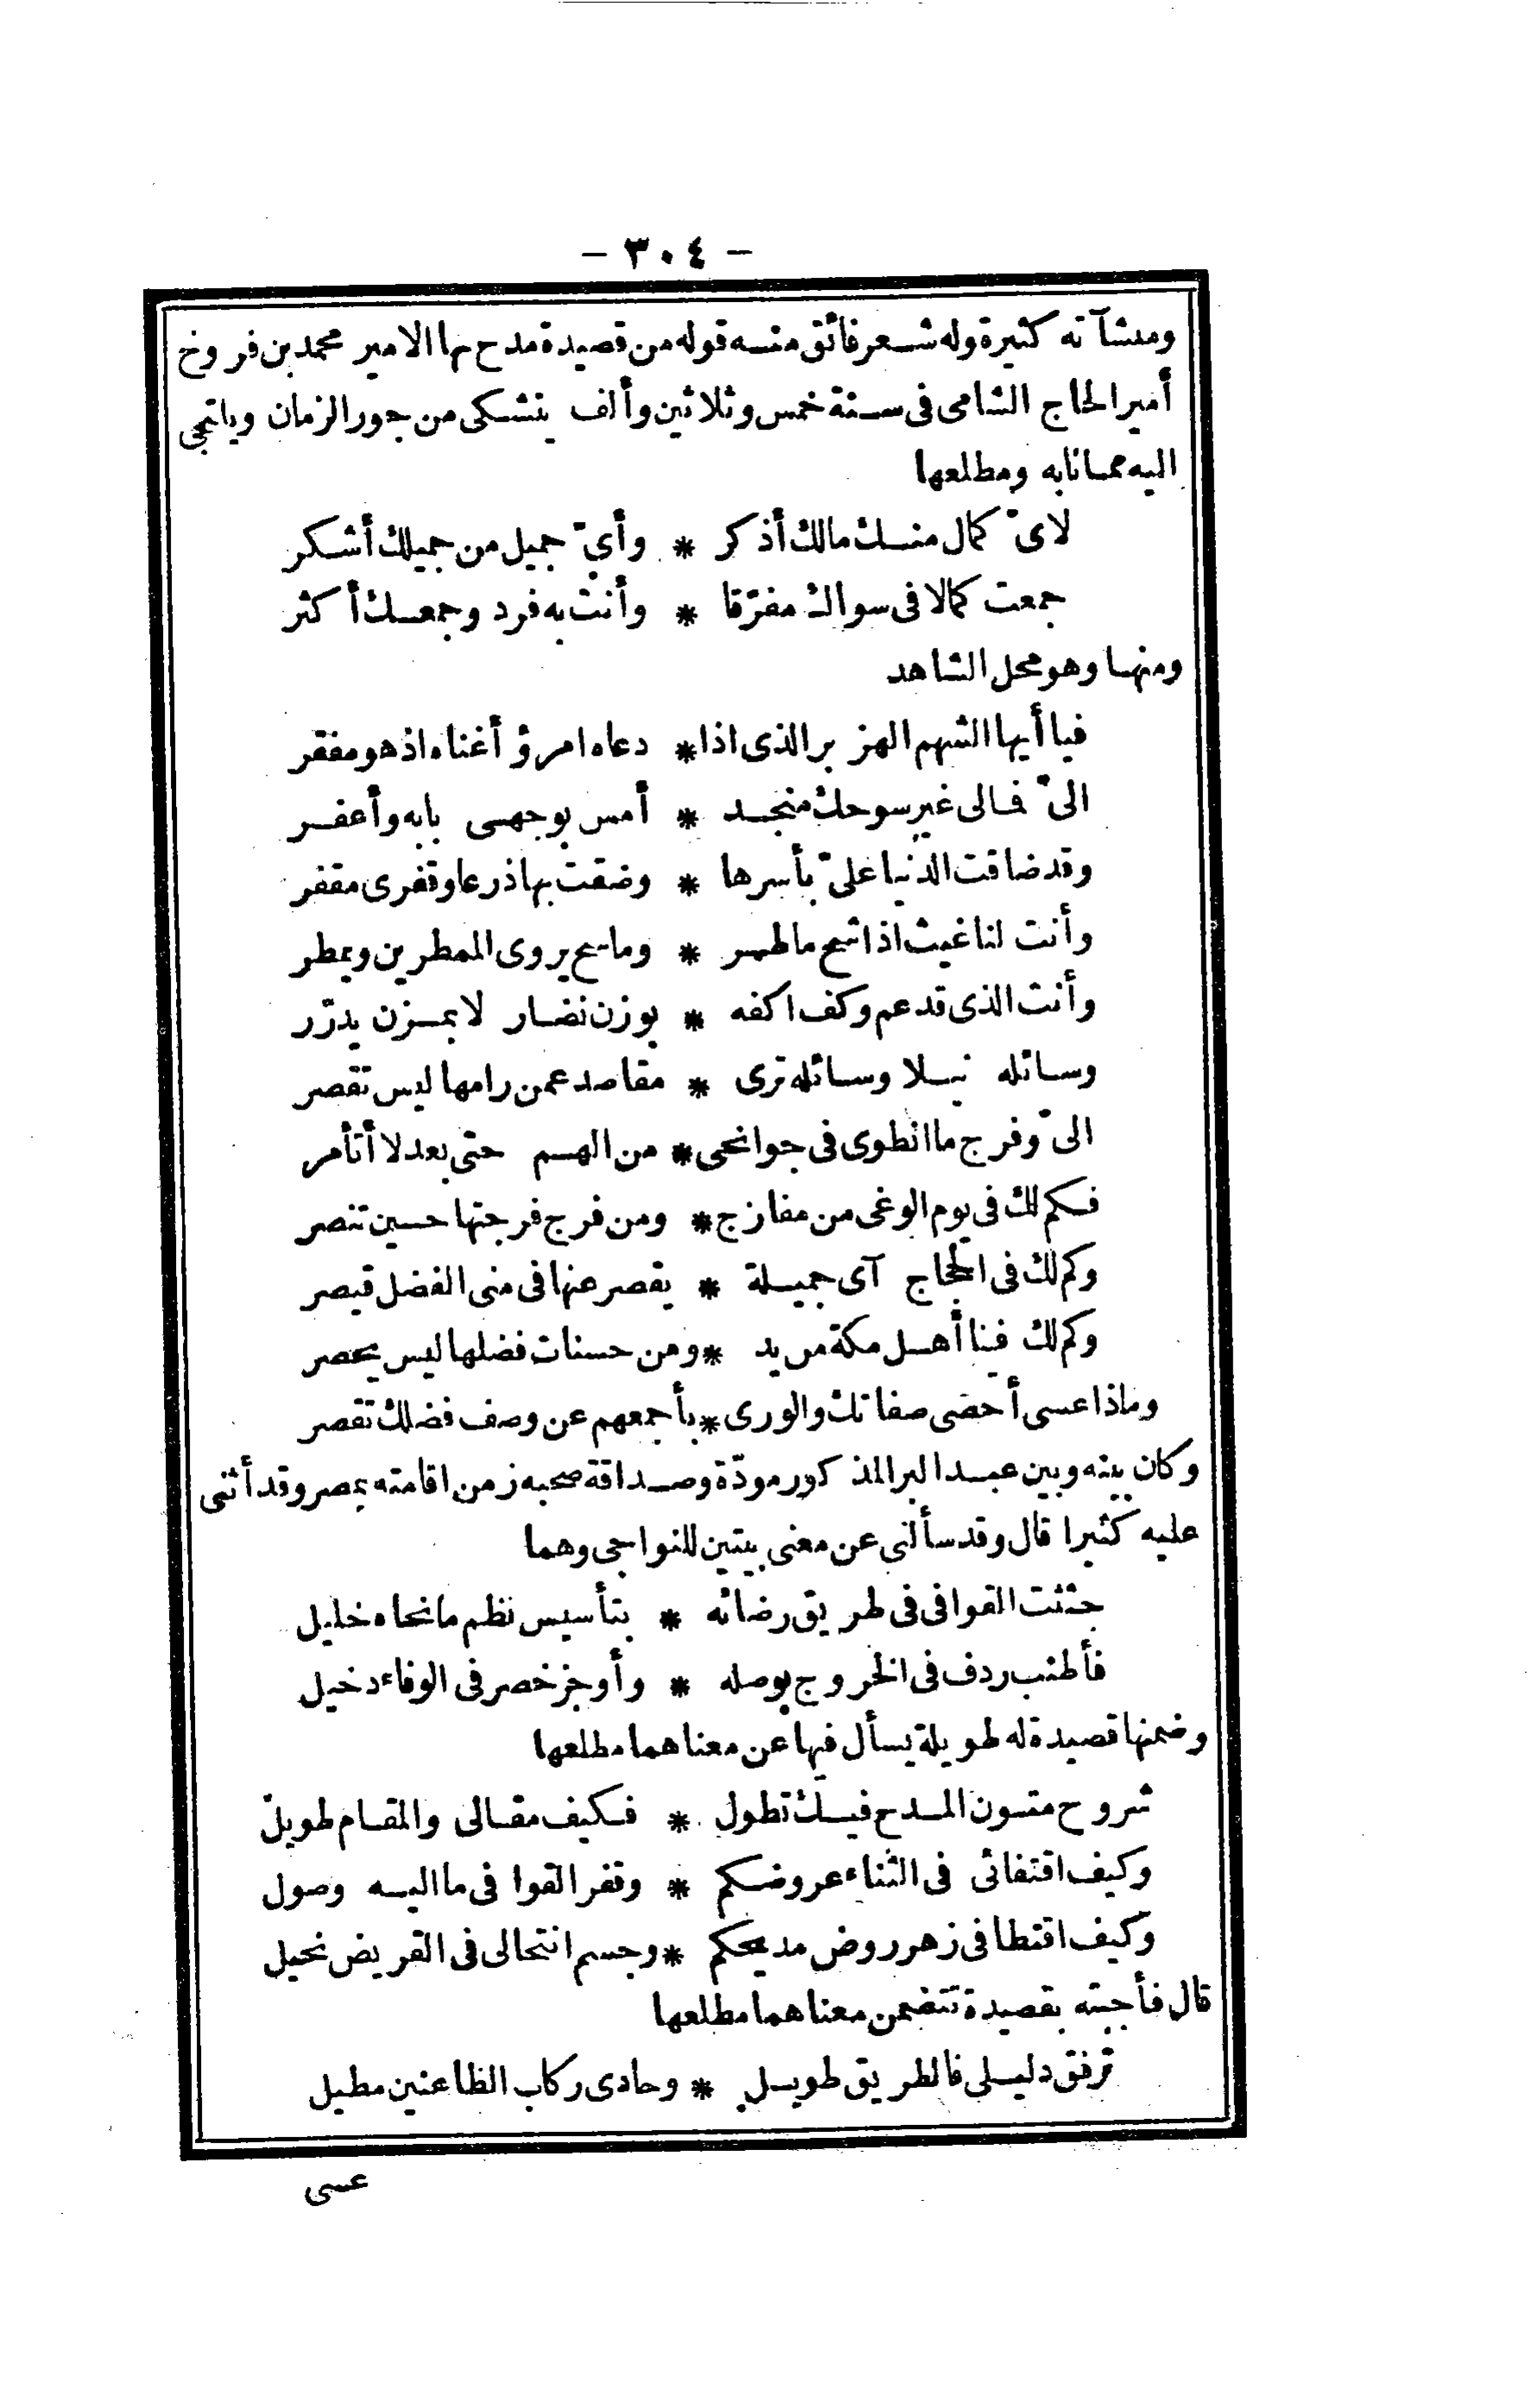 - ٣٠٤ -
ومنشآته كثيرة وله شعر فائق منه قوله من قصيدة مدح بها الامير محمد بن فروخ
أمير الحاج الشامى فى سنة خمس وثلاثين وألف يتشكى من جور الزمان ويلتجى
اليه مما نابه ومطلعها
لاىّ كمال منك مالك أذكر * وأىّ جميل من جميلك أشكر
جمعت كمالا فى سواك مفرّقا * وأنت به فرد وجمعك أكثر
ومنها وهو محل الشاهد
فيا أيها الشهم الهزبر الذى اذا * دعاه امرؤ أغناه اذ هو مفقر
الىّ فالى غير سوحك منجد * أمس بوجهى بابه وأعفر
وقد ضاقت الدنيا علىّ بأسرها * وضقت بها ذرعا وقفرى مقفر
وأنت لنا غيث اذا شح ماطر * وما سح يروى الممطرين ويمطر
وأنت الذى قد عم وكف اكفه * بوزن نضار لا بمزن يدرّر
وسائله نيلا وسائله ترى * مقاصد عمن رامها ليس تقصر
الىّ وفرج ما انطوى فى جوانحى * من الهم حتى بعد لا أتأمر
فكم لك فى يوم الوغى من مفازج * ومن فرج فرجتها حسين تنصر
وكم لك فى الحجاج آى جميلة * يقصر عنها فى منى الفضل قيصر
وكم لك فينا أهل مكة من يد * ومن حسنات فضلها ليس يحصر
وماذا عسى أحصى صفاتك والورى * بأجمعهم عن وصف فضلك تقصر
وكان بينه وبين عبد البر المذكور مودّة وصداقة صحبه زمن اقامته بمصر وقد أثنى
عليه كثيرا قال وقد سألنى عن معنى بيتين للنواجى وهما
حثثت القوافى فى طريق رضائه * بتأسيس نظم ما نحاه خليل
فأطنب ردف فى الخروج بوصله * وأوجز خصر فى الوفاء دخيل
وضمنها قصيدة له طويلة يسأل فيها عن معناهما مطلعها
شروح متون المدح فيك تطول * فكيف مقالى والمقام طويل
وكيف اقتفائى فى الثناء عروضكم * وقفر القوا فى ما اليه وصول
وكيف اقتطافى زهر روض مديحكم * وجسم انتحالى فى القريض نحيل
قال فأجبته بقصيدة تتضمن معناهما مطلعها
ترفق دليلى فالطريق طويل * وحادى ركاب الظاعنين مطيل
عسى